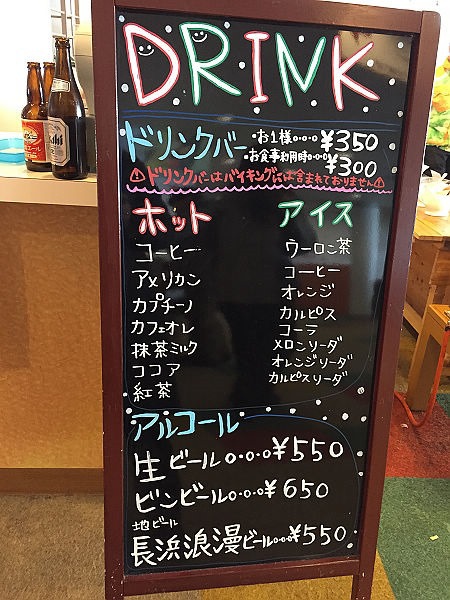 DRINK
ドリンクバー・お1様○・○・○ ¥350
・お食事利用時○・○・○ ¥300
⚠ドリンクバーはバイキングには含まれておりません⚠
ホット
コーヒー
アメリカン
カプチーノ
カフェオレ
抹茶ミルク
ココア
紅茶
アイス
ウーロン茶
コーヒー
オレンジ
カルピス
コーラ
メロンソーダ
オレンジソーダ
カルピスソーダ
アルコール
生ビール○・○・○¥550
ビンビール○・○・○¥650
地ビール
長浜浪漫ビール○・○・○¥550
Asahi